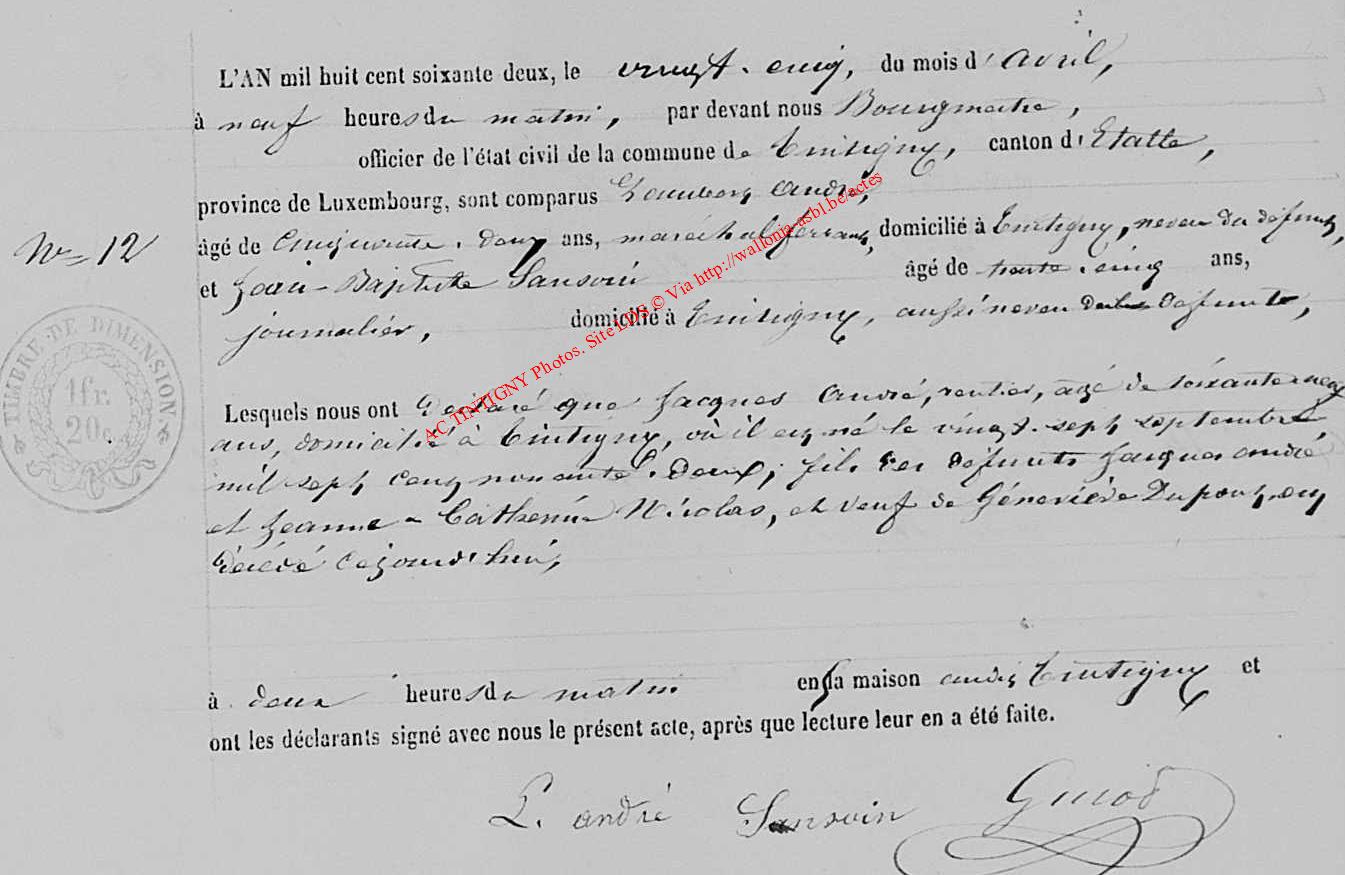 L'AN mil huit cent soixante deux, le vingt-cinq, du mois d'avril,
à neuf heures du matin, par devant nous Bourgmestre,
officier de l'état civil de la commune de Tintigny, canton d'Etalle,
province de Luxembourg, sont comparus Lambert André,
âgé de cinquante-deux ans, maréchal ferrant, domicilié à Tintigny, neveu du défunt,
N° 12
et Jean-Baptiste Sansoin âgé de trente-cinq ans,
journalier, domicilié à Tintigny, aussi neveu défunt,
TIMBRE DE DIMENSION
1fr.
20c
Lesquels nous ont déclaré que Jacques André, rentier, âgé de soixante-neuf
ans, domicilié à Tintigny, où il est né le vingt-sept septembre
mil sept cent nonante-deux, fils des défunts Jacques André
et Jeanne-Catherine Nicolas, et veuf de Géneviève Dupont, est
décédé cejourd'hui,
à deux heures du matin en sa maison audit Tintigny et
ont les déclarants signé avec nous le présent acte, après que lecture leur en a été faite.
L. andré Sansoin Guiot
AC TINTIGNY Photos. Site LDS © Via http://wallonia-asbl.be/actes